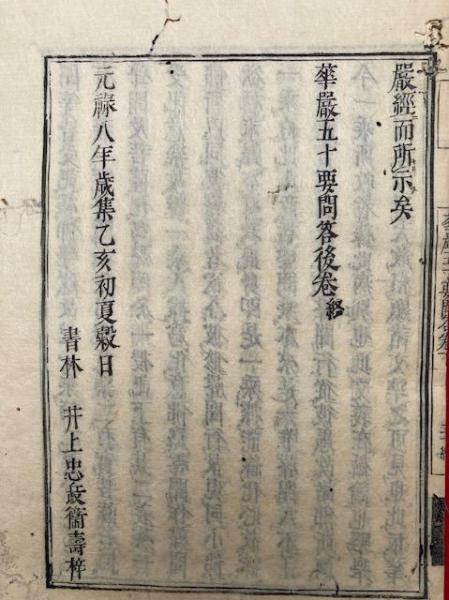 嚴經而所示矣
華嚴五十要問答後卷終
元祿八年歲集乙亥初夏穀日
書林 井上忠兵衞壽梓